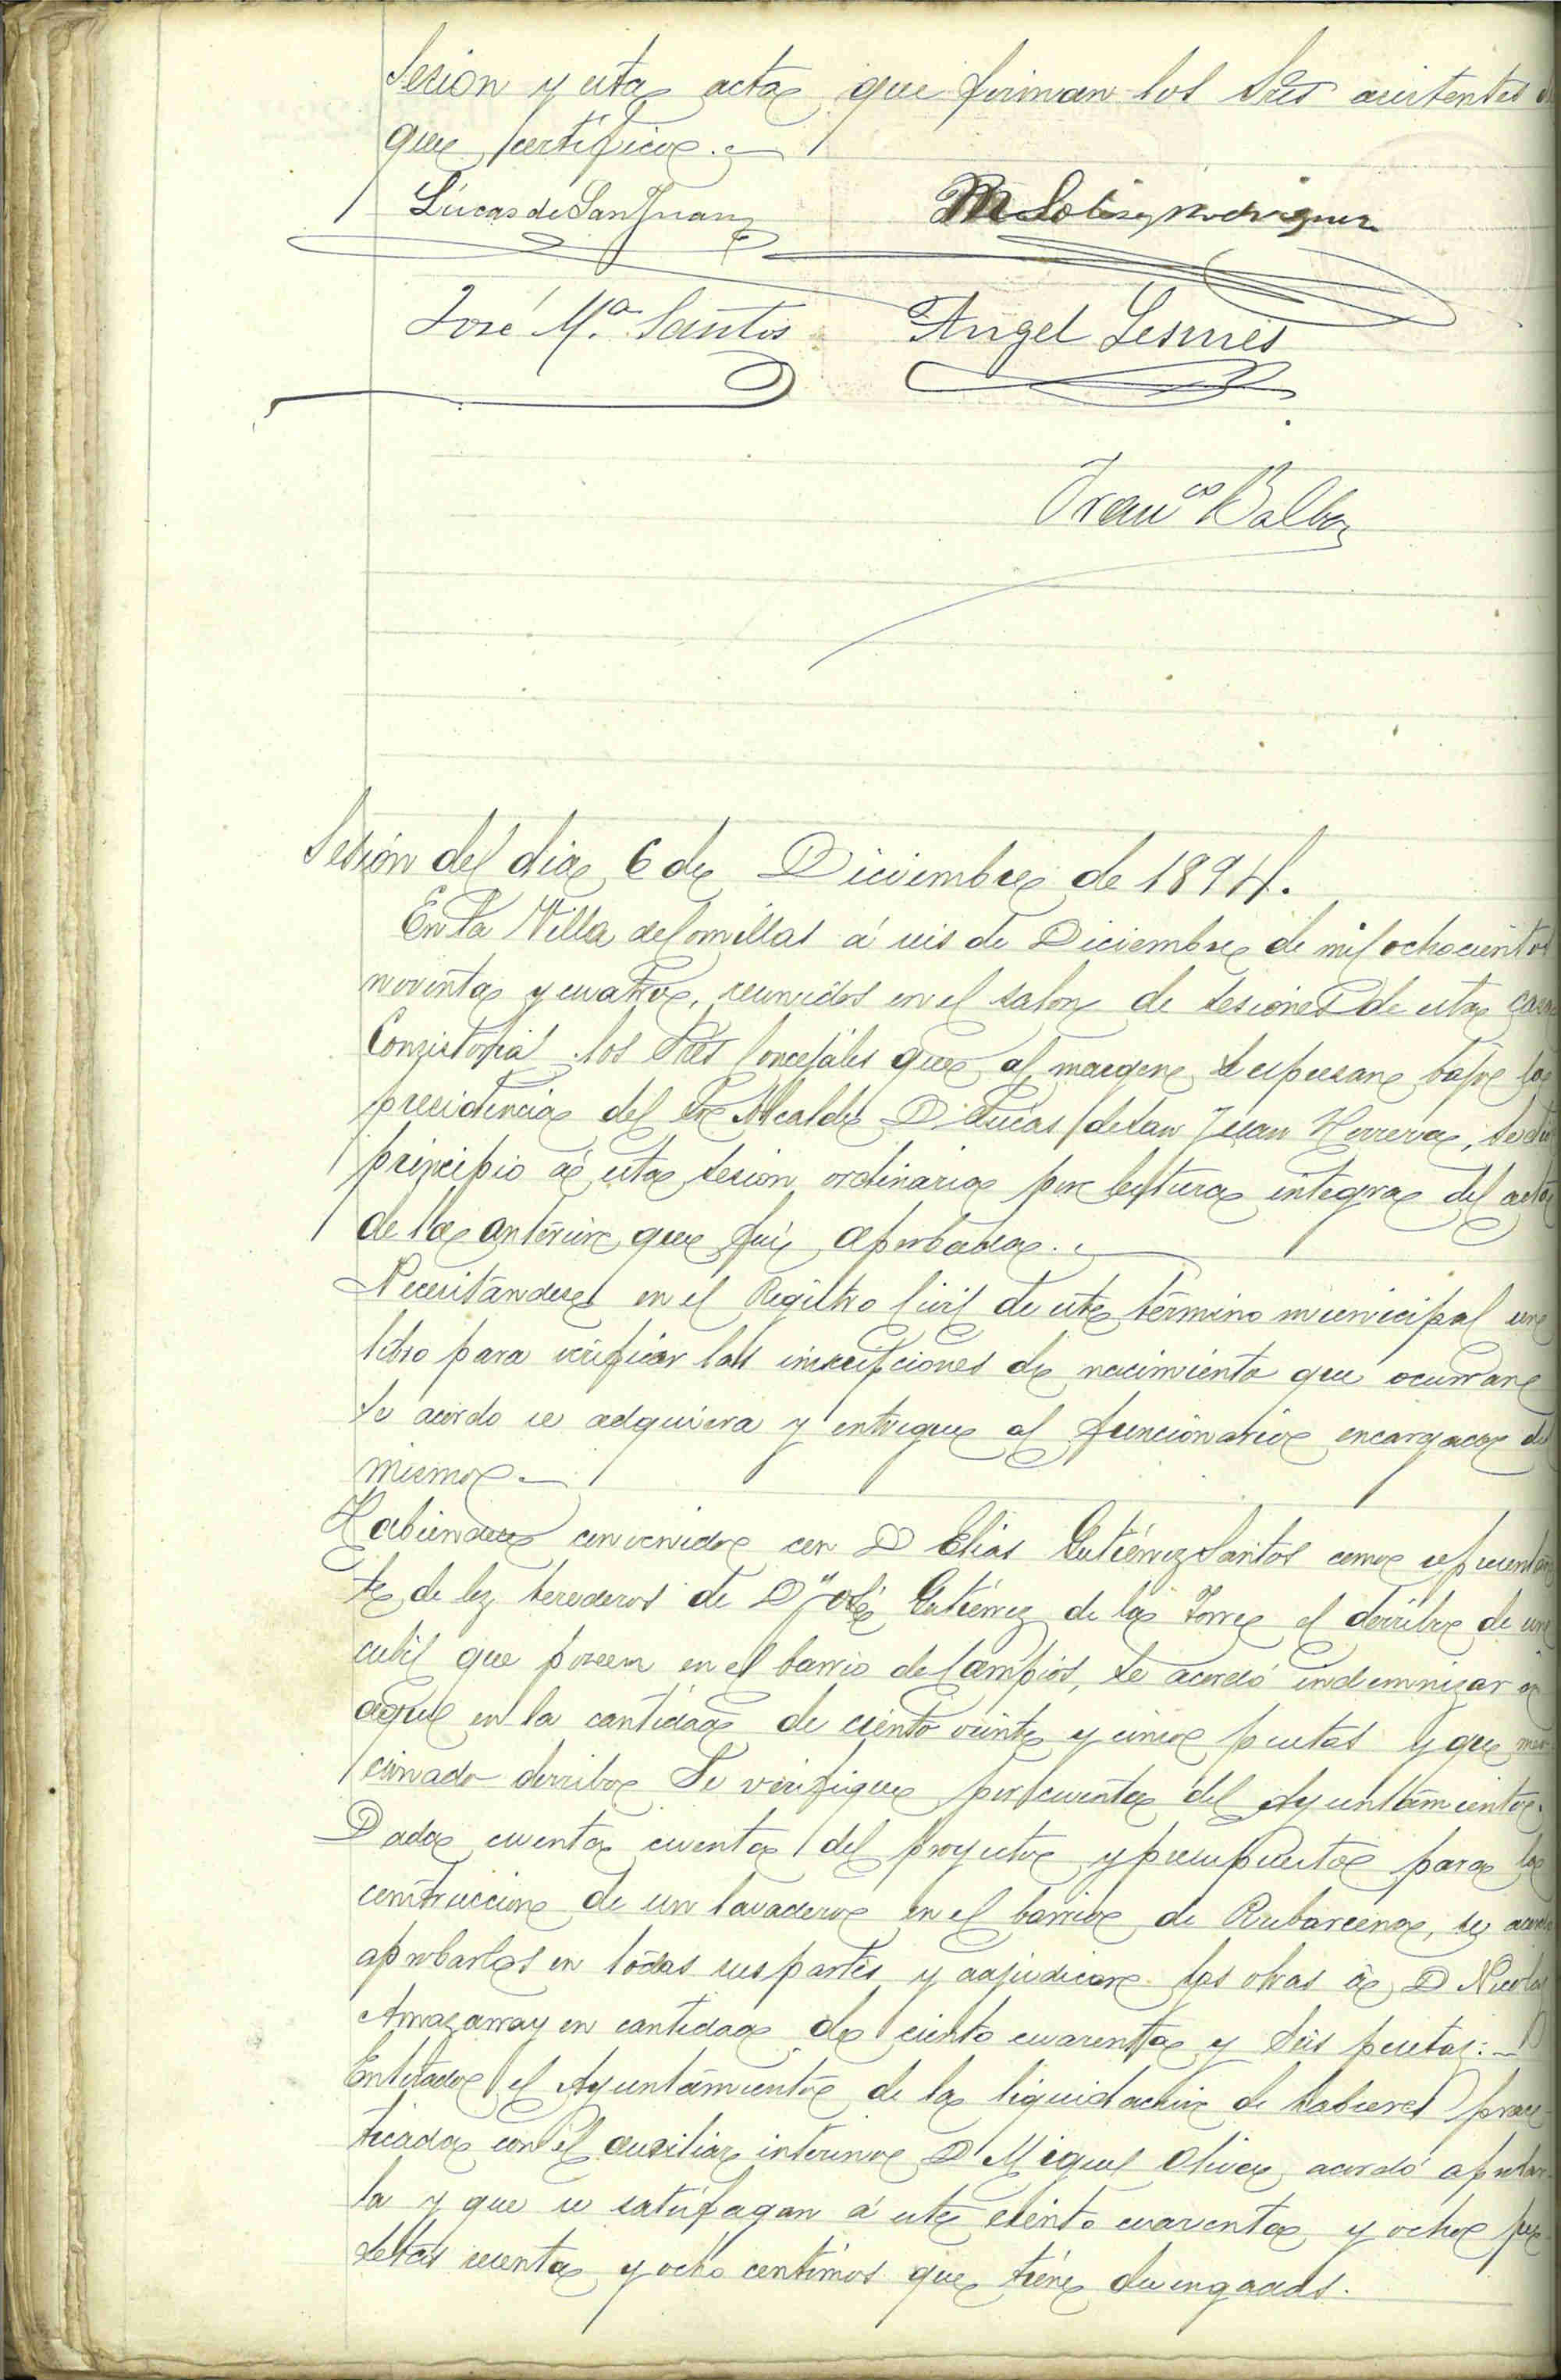 Sesion y esta acta que firman los Sres asistentes de
que certifico.
Lúcas de San Juan
M Solis y Rodriguez
José Mª. Santos
Angel Lesmes
Franco Balboa
Sesión del dia 6 de Diciembre de 1894.
En la Villa de Comillas á seis de Diciembre de mil ochocientos
noventa y cuatro, reunidos en el salon de sesiones de esta casa
Consistorial los Sres Concejáles que al margen se espresan bajo la
presidencia del Sr Alcalde D Lucas de San Juan Herrera, se dió
principio á esta sesion ordinaria por lectura integra del acta
de la anterior que fué aprobada.
Necesitándose en el Registro Civil de este término municipal un
libro para verificar las inscripciones de nacimiento que ocurran
se acordo se adquiera y entregue al funcionario encargado del
mismo.
Habiendose convenido con D Elias Gutiérrez Santos como representan
te de los herederos de Dn José Gutiérrez de la Torre el derribo de un
cubil que poseen en el barrio de Campios, se acordó indemnizar á
aquel en la cantidad de ciento veinte y cinco pesetas y que men
cionado derribo se verifique por cuenta del Ayuntamiento.
Dada cuenta cuenta del proyecto y presupuesto para la
construccion de un lavadero en el barrio de Rubarcena, se acordó
aprobarlos en todas sus partes y adjudicar las obras á D Nicolas
Amazarray en cantidad de ciento cuarenta y seis pesetas:
Enterado el Ayuntamiento de la liquidacion de haberes prac-
ticada con el ausiliar interino D Miguel Oliver acordó aprobar-
la y que se satisfagan á este ciento cuarenta y ocho pe-
setas sesenta y ocho centimos que tiene devengadas.